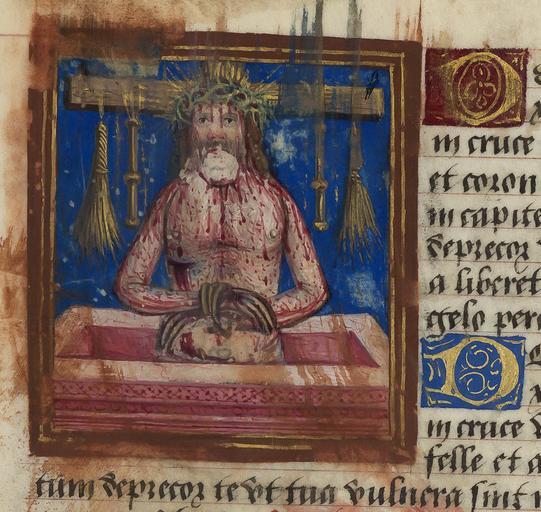 in cruce
et coron
in capite
deprecor
a liberet
gelo perc
in cruce v
felle et a
tum deprecor te vt tua vulnera sint r